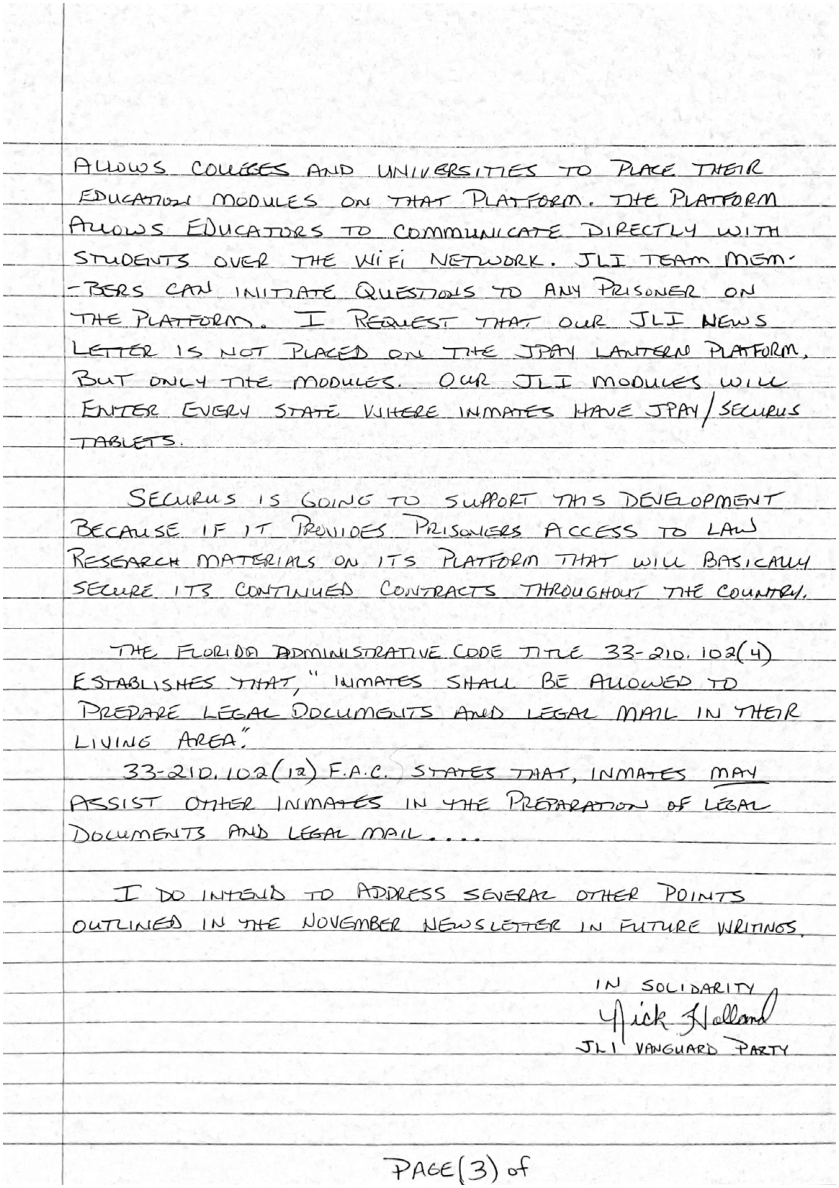 ALLOWS COLLEGES AND UNIVERSITIES TO PLACE THEIR
EDUCATION MODULES ON THAT PLATFORM. THE PLATFORM
ALLOWS EDUCATORS TO COMMUNICATE DIRECTLY WITH
STUDENTS OVER THE WiFi NETWORK. JLI TEAM MEM-
-BERS CAN INITIATE QUESTIONS TO ANY PRISONER ON
THE PLATFORM. I REQUEST THAT OUR JLI NEWS
LETTER IS NOT PLACED ON THE JPAY LANTERN PLATFORM,
BUT ONLY THE MODULES. OUR JLI MODULES WILL
ENTER EVERY STATE WHERE INMATES HAVE JPAY/SECURUS
TABLETS.
SECURUS IS GOING TO SUPPORT THIS DEVELOPMENT
BECAUSE IF IT PROVIDES PRISONERS ACCESS TO LAW
RESEARCH MATERIALS ON ITS PLATFORM THAT WILL BASICALLY
SECURE ITS CONTINUED CONTRACTS THROUGHOUT THE COUNTRY.
THE FLORIDA ADMINISTRATIVE CODE TITLE 33-210.102(4)
ESTABLISHES THAT, "INMATES SHALL BE ALLOWED TO
PREPARE LEGAL DOCUMENTS AND LEGAL MAIL IN THEIR
LIVING AREA."
33-210.102(12) F.A.C. STATES THAT, INMATES MAY
ASSIST OTHER INMATES IN THE PREPARATION OF LEGAL
DOCUMENTS AND LEGAL MAIL....
I DO INTEND TO ADDRESS SEVERAL OTHER POINTS
OUTLINED IN THE NOVEMBER NEWSLETTER IN FUTURE WRITINGS.
IN SOLIDARITY
Nick Holland
JLI VANGUARD PARTY
PAGE(3) of